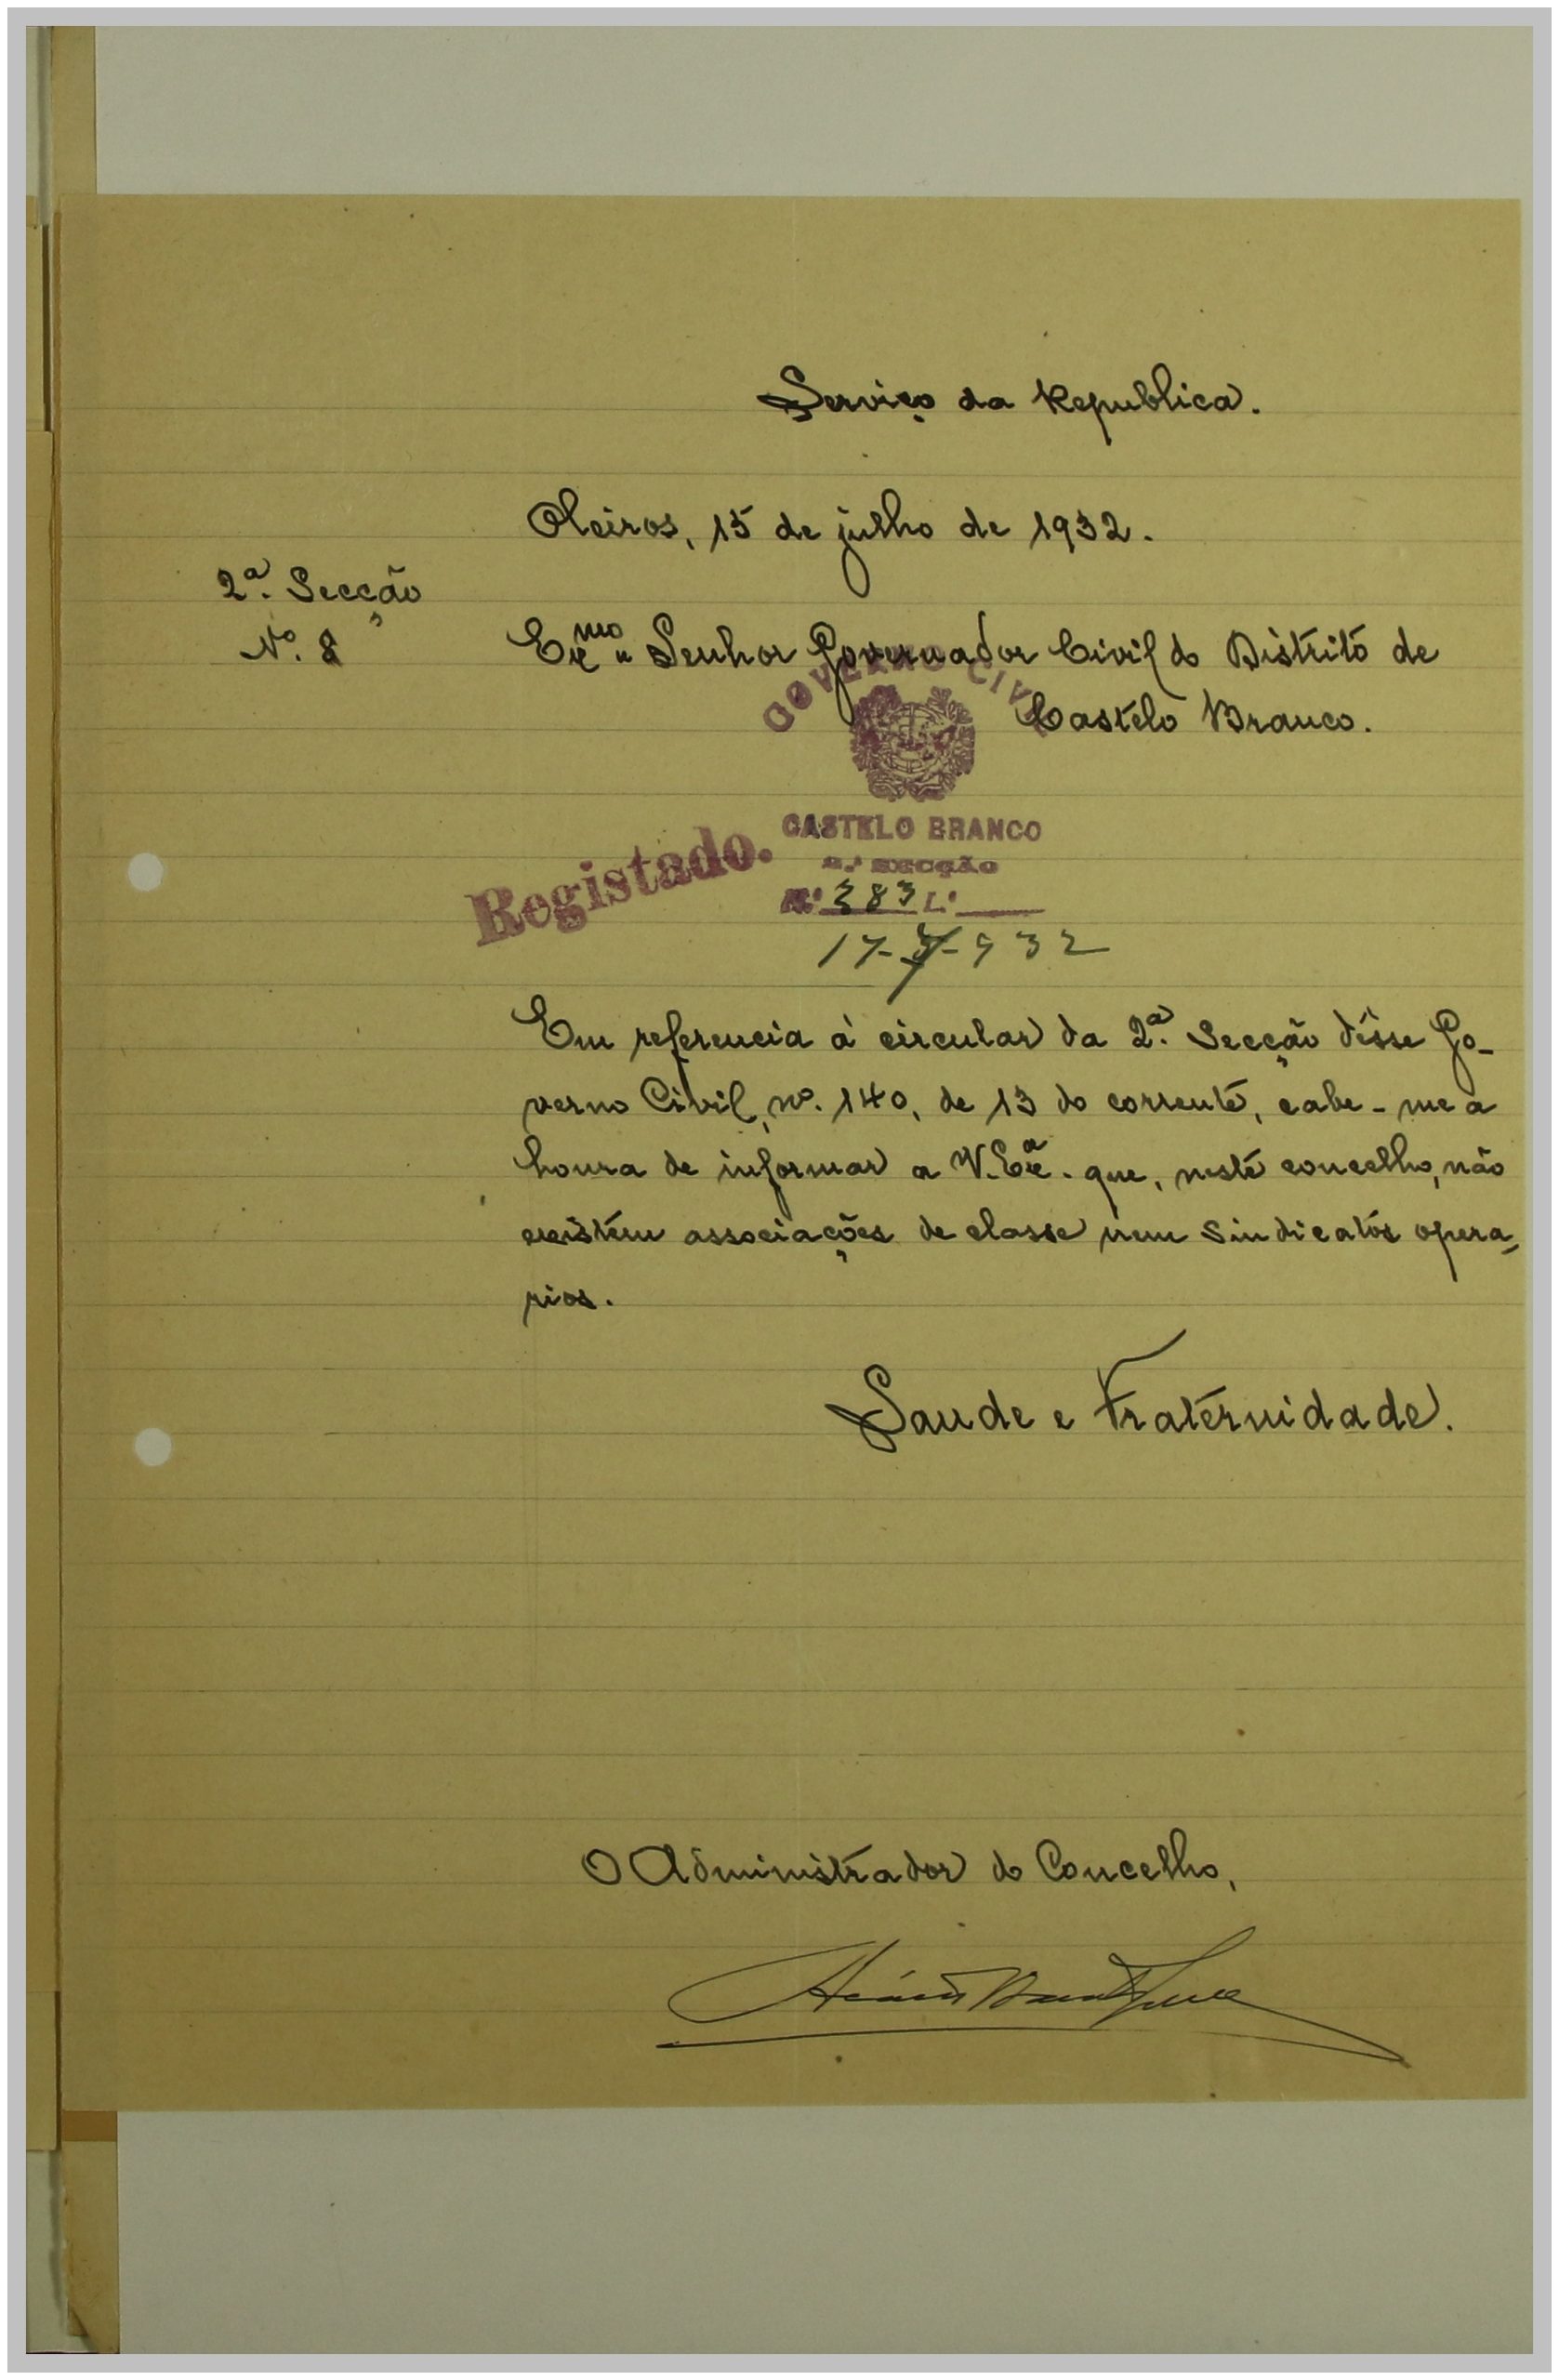 Serviço da Republica.
Oleiros, 15 de julho de 1932.
2ª. Secção
Nº. 8
Exmo. Senhor Governador Civil do Distrito de
Castelo Branco.
GOVERNO CIVIL
CASTELO BRANCO
2.ª SECÇÃO
Registado.
N.º 383 L.º
17-7-932
Em referencia á circular da 2ª. Secção dêsse Go-
verno Civil, nº. 140, de 13 do corrente, cabe-me a
honra de informar a V. Exª. que, neste concelho, não
existem associações de classe nem sindicatos opera-
rios.
Saude e Fraternidade.
O Administrador do Concelho,